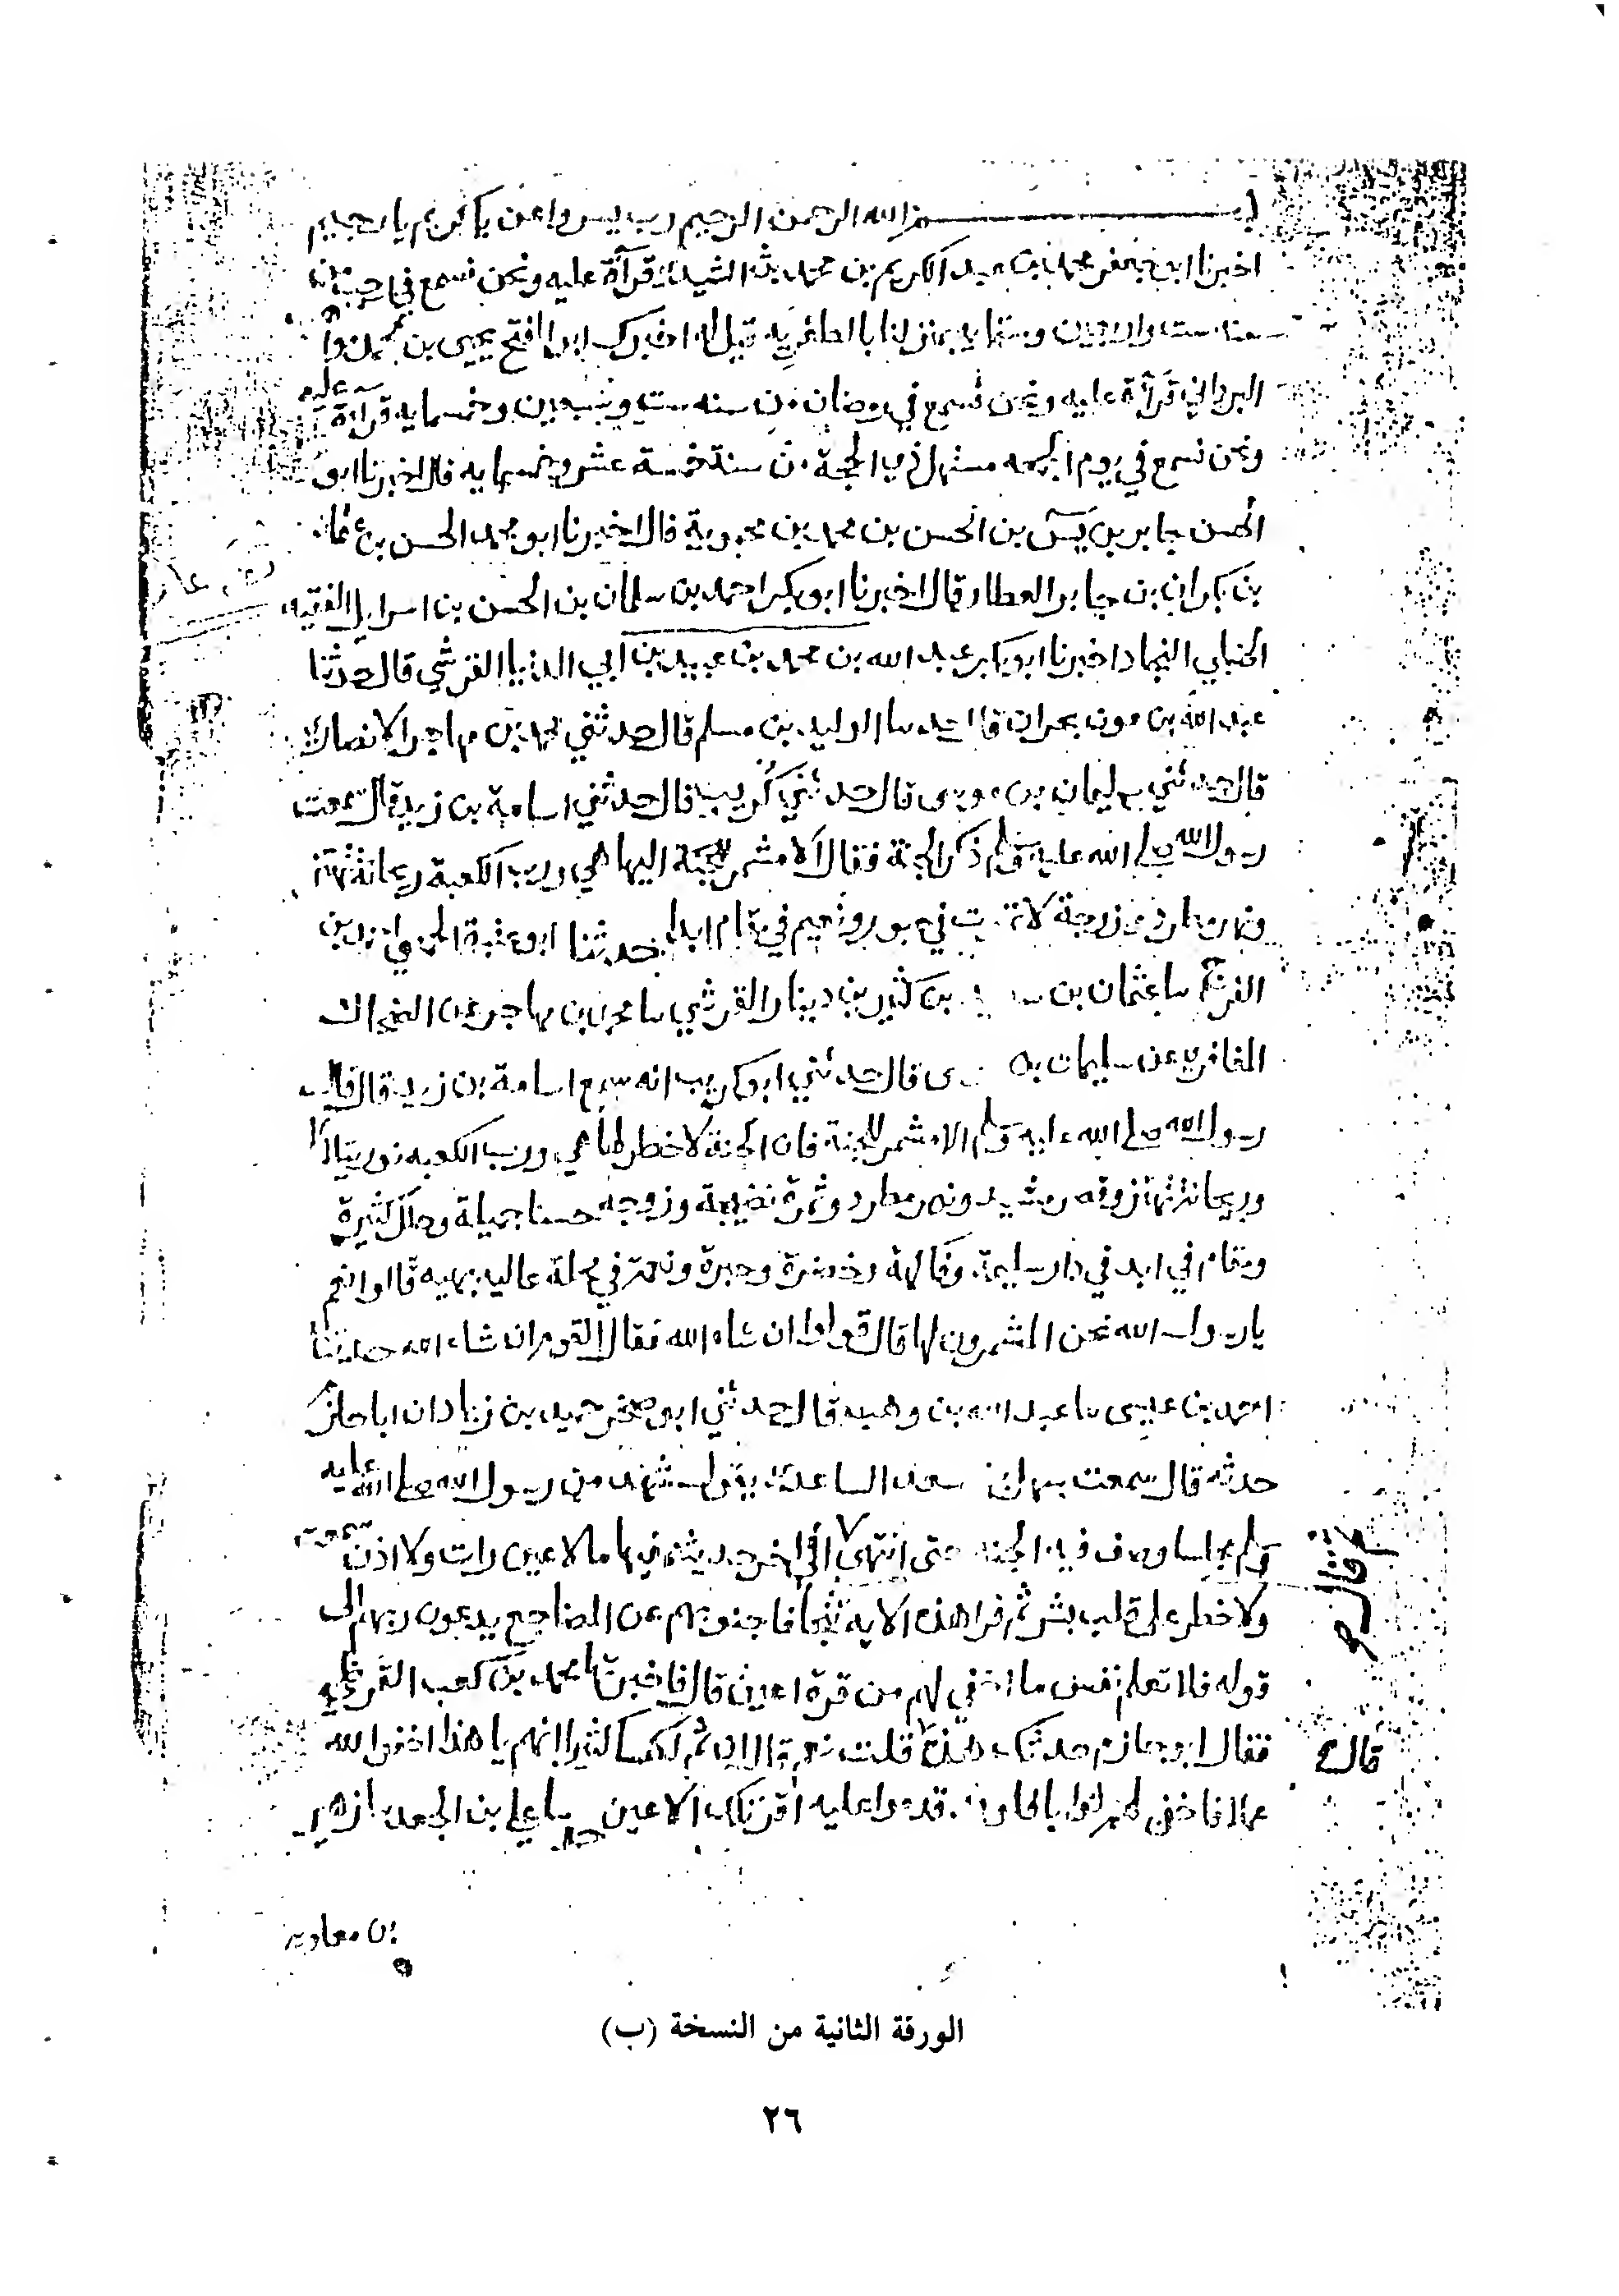 بسم الله الرحمن الرحيم رب يسر واعن يا كريم يا رحيم
اخبرنا ابو جعفر محمد بن عبد الكريم بن محمد بن السيدي قرآة عليه ونحن نسمع في رجب من
سنه ست واربعين وستمايه بمنزلنا بالظفريه قيل له اخبرك ابو الفتح يحيى بن محمد
البرداني قرآة عليه ونحن نسمع في رمضان من سنه ست وسبعين وخمسمايه قراءة عليه
ونحن نسمع في يوم الجمعه مستهل ذي الحجة من سنة خمسة عشر وخمسمايه قال اخبرنا ابو
الحسن جابر بن يس بن الحسن بن محمد بن محموية قال اخبرنا ابو محمد الحسن بن عثمان
بن بكران بن جابر العطار قال اخبرنا ابو بكر احمد بن سلمان بن الحسن بن اسرايل الفقيه
الحنبلي النجاد اخبرنا ابو بكر عبد الله بن محمد بن عبيد بن ابي الدنيا القرشي قال حدثنا
عبد الله بن عون بحران قال حدسا الوليد بن مسلم قال حدثني محمد بن مهاجر الانصاري
قال حدثني سليمان بن موسى قال حدثني كريب قال حدثني اسامة بن زيد قال سمعت
رسول الله صلى الله عليه وسلم ذكر الجنة فقال الا مشمر للجنة اليها هي ورب الكعبة ريحانة تهتز
ونهر مطرد وزوجة لا تموت في حبور ونعيم في مقام ابدا حدثنا ابو عتبة الحمصي احمد بن
الفرج سا عثمان بن سعيد بن كثير بن دينار القرشي سا محمد بن مهاجر عن الضحاك
المعافري عن سليمان بن موسى قال حدثني ابو كريب انه سمع اسامة بن زيد قال قال
رسول الله صلى الله عليه وسلم الا مشمر للجنة فان الجنة لا خطر لها هي ورب الكعبه نور يتلألأ
وريحانة تهتز وقصر مشيد ونهر مطرد وثمرة نضيجة وزوجه حسنا جميلة وحلل كثيرة
ومقام في ابد في دار سليمة وفاكهة وخضرة وحبرة ونعمة في محلة عاليه بهيه قالوا نعم
يا رسول الله نحن المشمرون لها قال قولوا ان شاء الله فقال القوم ان شاء الله حدثنا
احمد بن عيسى سا عبد الله بن وهب قال حدثني ابو صخر حميد بن زياد ان ابا حازم
حدثه قال سمعت سهل بن سعد الساعدي يقول شهدت من رسول الله صلى الله عليه
وسلم مجلسا وصف فيه الجنه حتى انتهى الى اخر حديثه فيها ما لا عين رات ولا اذن سمعت
ولا خطر على قلب بشر ثم قرا هذه الايه تتجافا جنوبهم عن المضاجع يدعون ربهم الى
قوله فلا تعلم نفس ما اخفي لهم من قرة اعين قال فاخبرتها محمد بن كعب القرظي
فقال ابو حازم حدثك هذا قلت نعم قال ان ثم لكيسا كثيرا انهم يا هذا اخفوا لله
عملا فاخفى لهم ثوابا فلو قدموا عليه اقر تلك الاعين حدسا علي بن الجعد سا زهير
قال
بن معاوية
الورقة الثانية من النسخة (ب)
٢٦